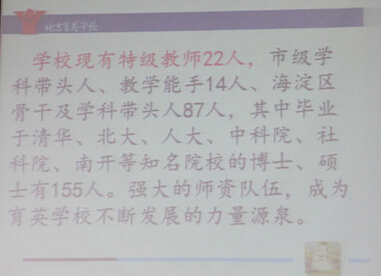 北京育英学校
学校现有特级教师22人，市级学
科带头人、教学能手14人、海淀区
骨干及学科带头人87人，其中毕业
于清华、北大、人大、中科院、社
科院、南开等知名院校的博士、硕
士有155人。强大的师资队伍，成为
育英学校不断发展的力量源泉。